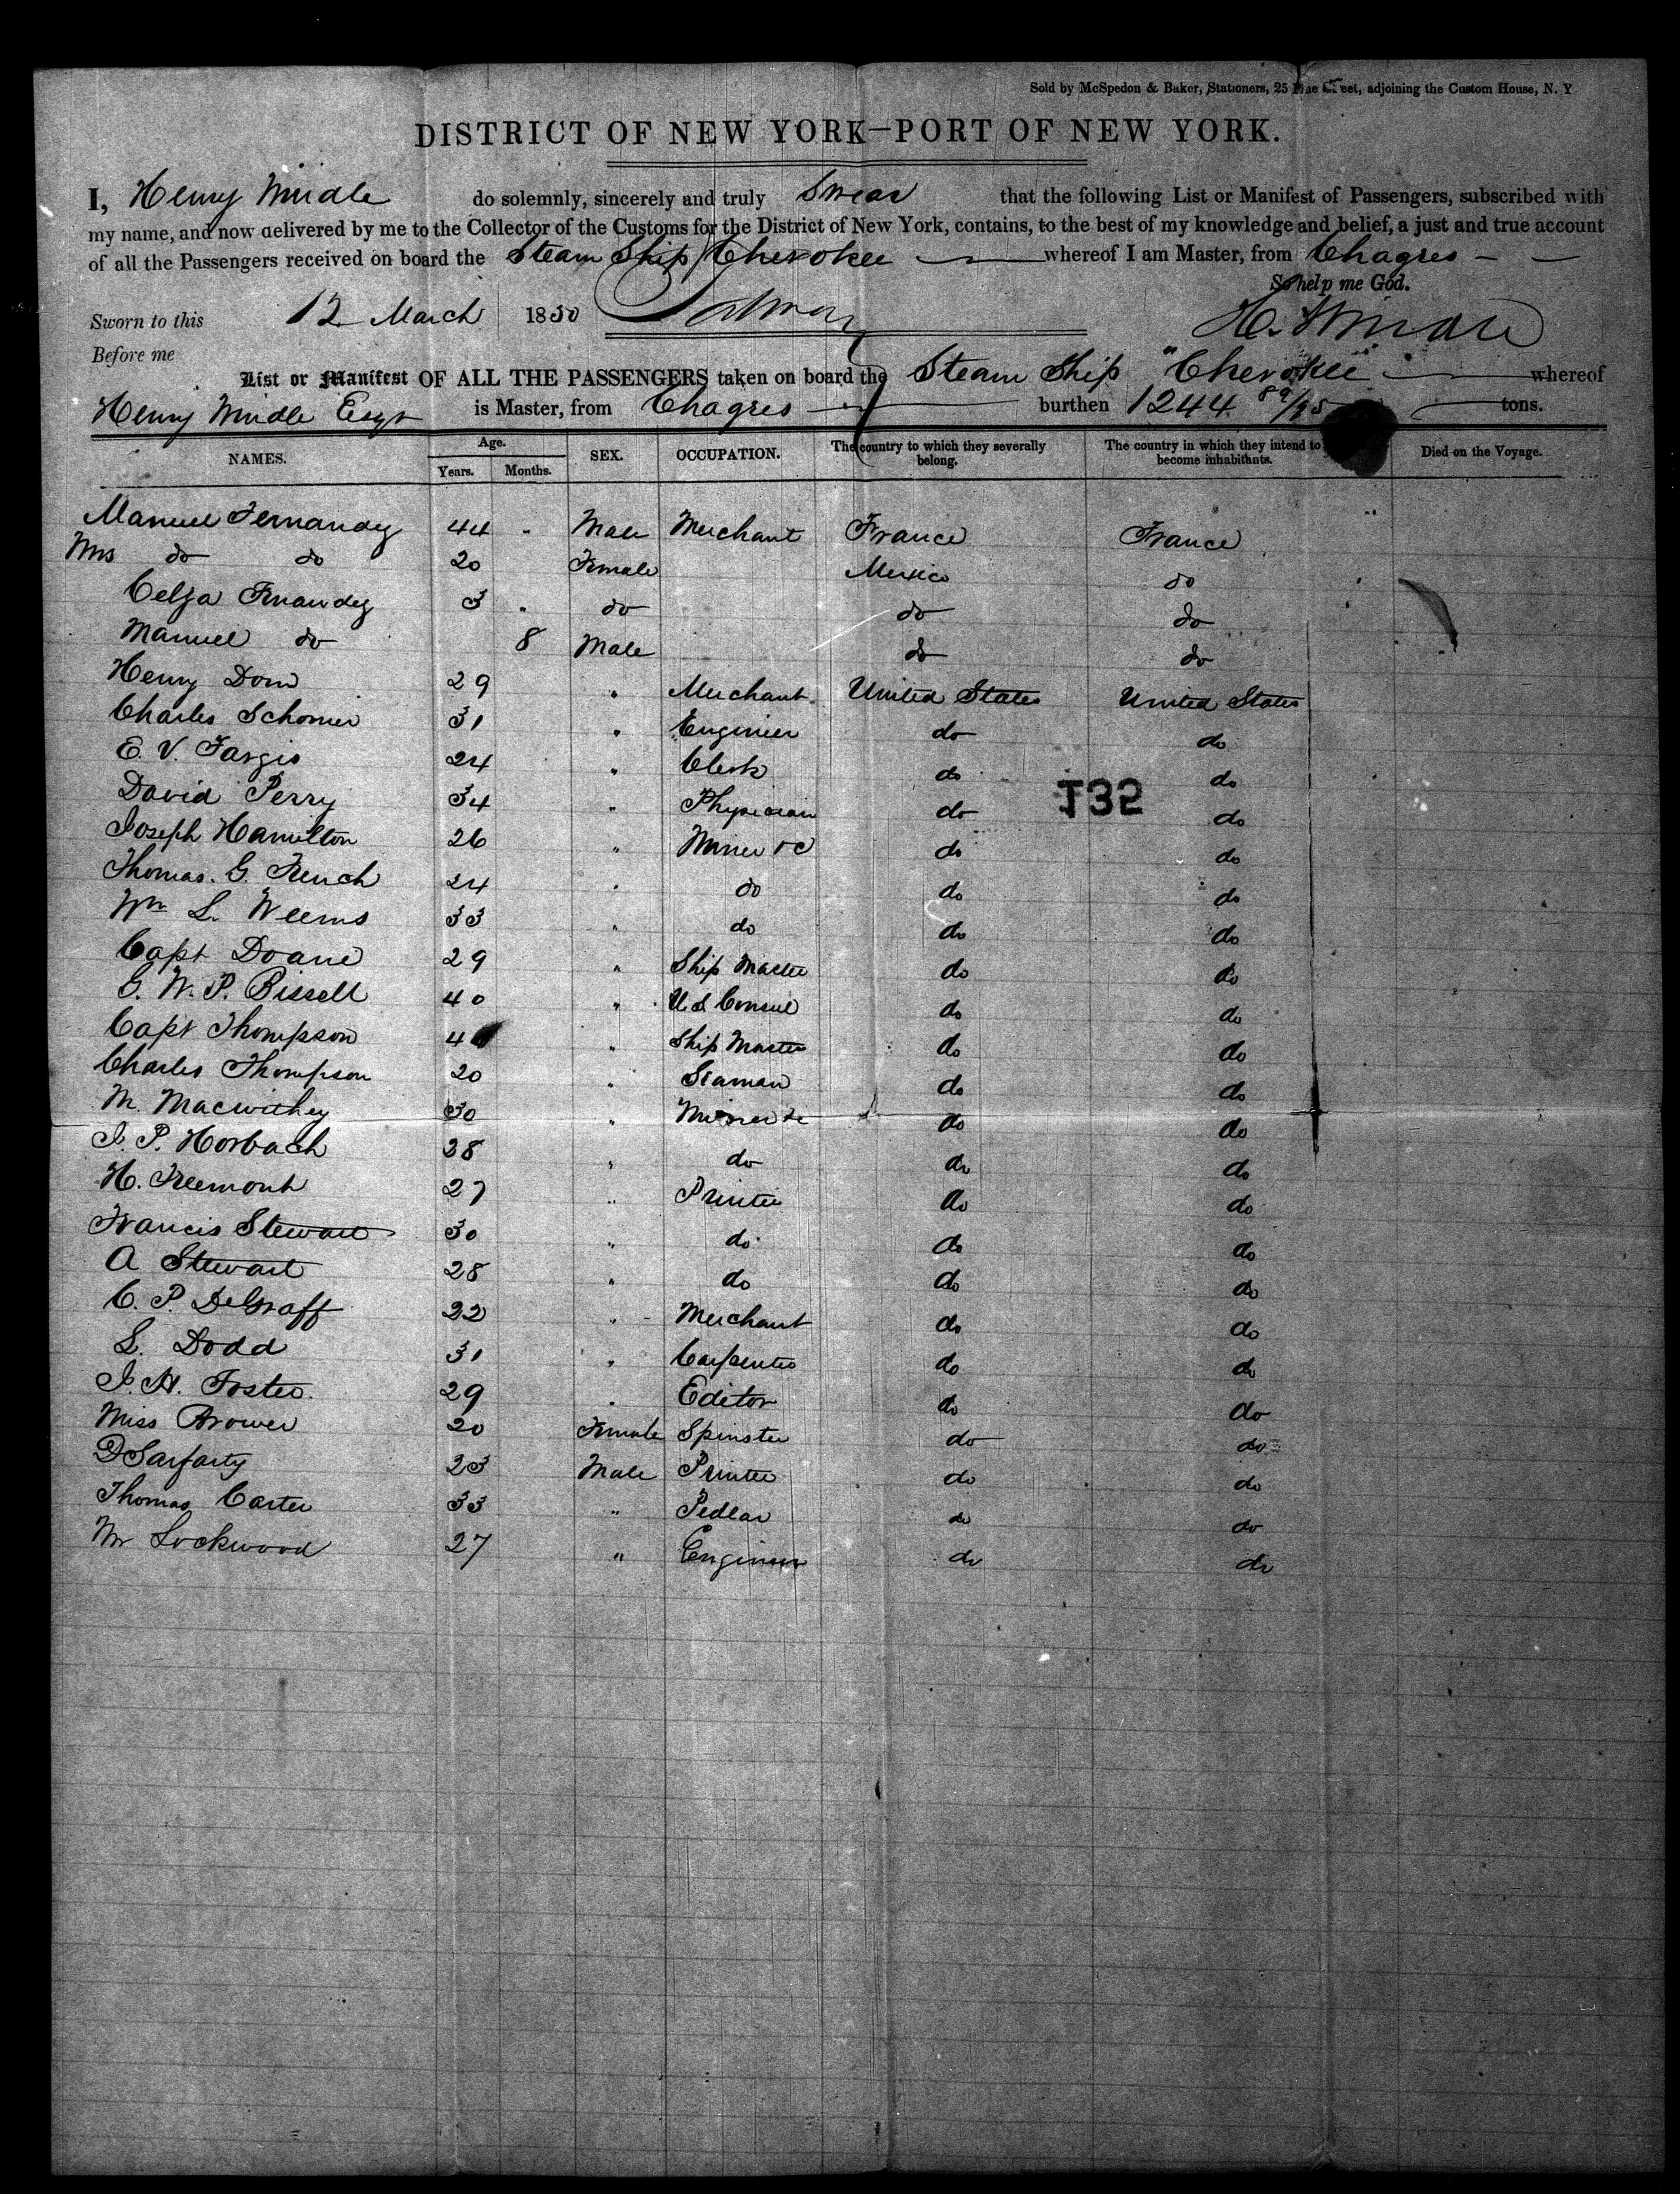 Sold by McSpedon & Baker, Stationers, 25 Pine Street, adjoining the Custom House, N. Y
DISTRICT OF NEW YORK—PORT OF NEW YORK.
I, Henry Windle do solemnly, sincerely and truly Swear that the following List or Manifest of Passengers, subscribed with
my name, and now delivered by me to the Collector of the Customs for the District of New York, contains, to the best of my knowledge and belief, a just and true account
of all the Passengers received on board the Steam Ship Cherokee whereof I am Master, from Chagres
So help me God.
Sworn to this 12 March 1850 H. Windle
Before me
List or Manifest OF ALL THE PASSENGERS taken on board the Steam Ship "Cherokee" whereof
Henry Windle Esqr is Master, from Chagres burthen 1244 89/95 tons.
NAMES. Age. Years. Months. SEX. OCCUPATION. The country to which they severally belong. The country in which they intend to become inhabitants. Died on the Voyage.
Manuel Fernandez 44 " Male Merchant France France
Mrs do do 20 Female Mexico do
Celza Frnandez 3 " do do do
Manuel do 8 Male do do
Henry Dorn 29 " Merchant United States United States
Charles Schomer 31 " Engineer do do
E. V. Fargis 24 " Clerk do do
132
David Perry 34 " Physician do do
Joseph Hamilton 26 " Miner &c do do
Thomas. G. French 24 " do do do
Wm L. Weems 33 " do do do
Capt Doane 29 " Ship Master do do
G. W. P. Bissell 40 " U S Consul do do
Capt Thompson 4 " Ship Master do do
Charles Thompson 20 " Seaman do do
M. Macwithey 30 " Miner &c do do
J. P. Horbach 28 " do do do
H. Freemont 27 " Printer do do
Francis Stewart 30 " do do do
A Stewart 28 " do do do
C. P. DeGraff 22 " Merchant do do
L. Dodd 31 " Carpenter do do
J. H. Foster. 29 " Editor do do
Miss Brower 20 Female Spinster do do
D Sarfarty 23 Male Printer do do
Thomas Carter 33 " Pedlar do do
Mr Lockwood 27 " Engineer do do